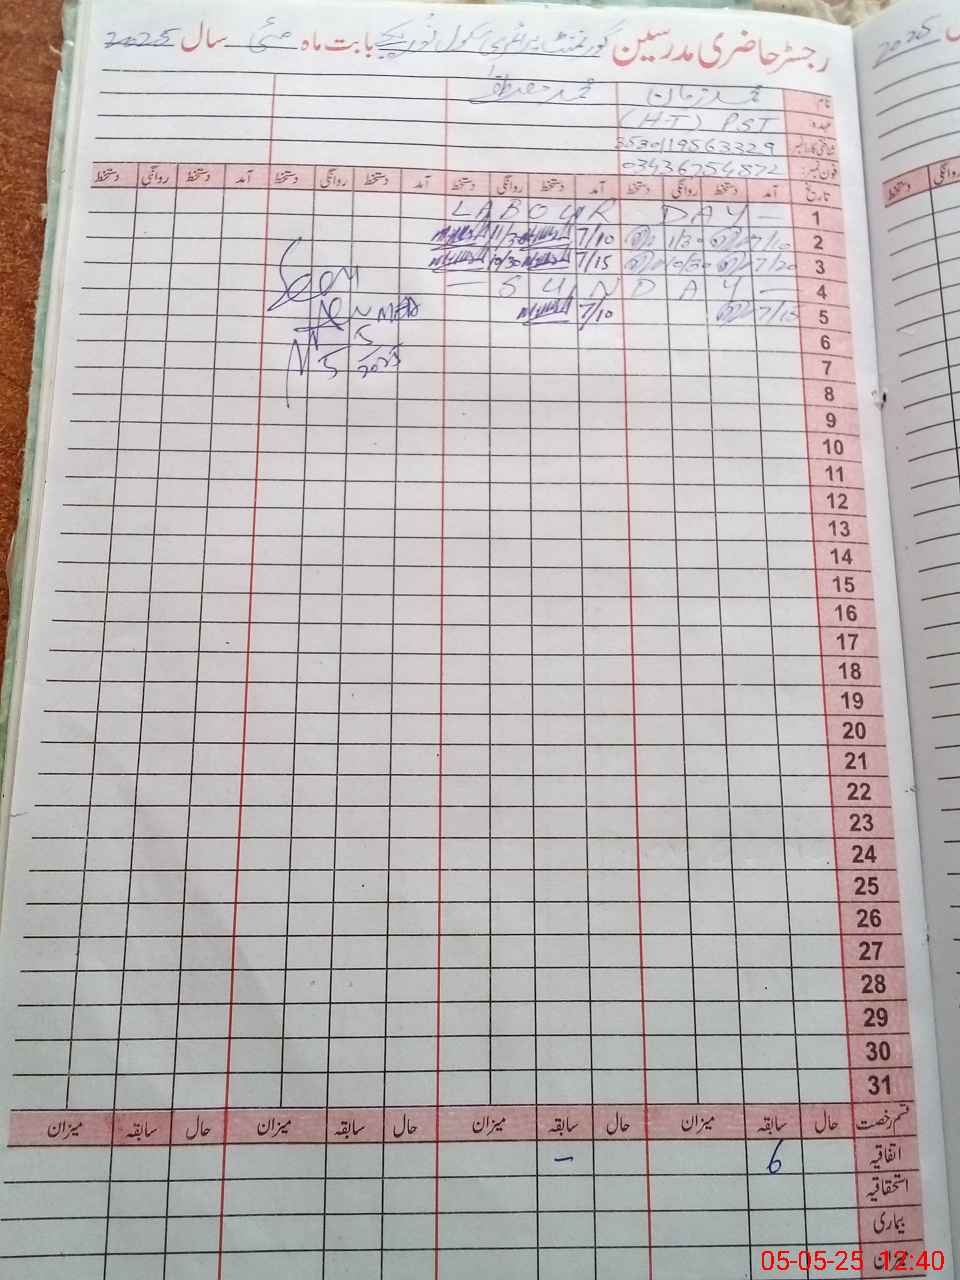 رجسٹر حاضری مدرسین گورنمنٹ پرائمری سکول بابت ماہ مئی سال 2025
2025
نام: محمد زمان محمد
عہدہ: (HT) PST
شناختی کارڈ نمبر
فون نمبر: 03436754872
تاریخ آمد دستخط روانگی دستخط آمد دستخط روانگی دستخط آمد دستخط روانگی دستخط آمد دستخط روانگی دستخط
1 LABOUR DAY —
2 7/10 1/30 7/10 11/30
3 7/20 10/30 7/15 10/30
4 — SUNDAY —
5 7/15 7/10
Seen
MEA
5
5 2025
6
7
8
9
10
11
12
13
14
15
16
17
18
19
20
21
22
23
24
25
26
27
28
29
30
31
قسم رخصت حال سابقہ میزان حال سابقہ میزان حال سابقہ میزان حال سابقہ میزان
اتفاقیہ 6 –
استحقاقیہ
بیماری
میزان
05-05-25 12:40